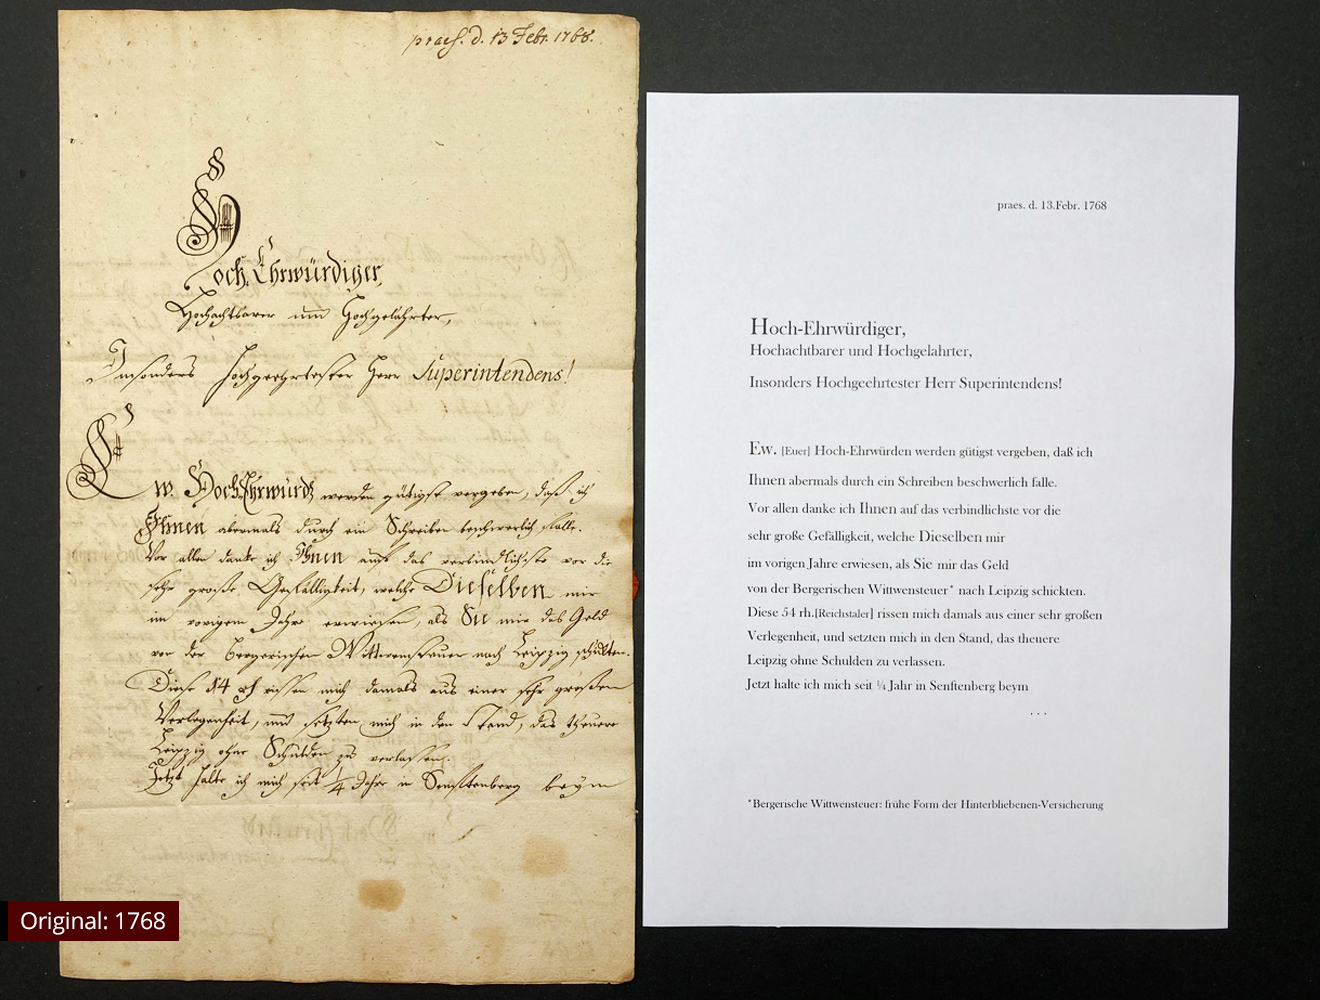 praes. d. 13 Febr. 1768.
Hoch-Ehrwürdiger,
Hochachtbarer und Hochgelahrter,
Insonders Hochgeehrtester Herr Superintendens!
Ew. Hoch-Ehrwürd werden gütigst vergeben, daß ich
Ihnen abermals durch ein Schreiben beschwerlich falle.
Vor allen danke ich Ihnen auf das verbindlichste vor die
sehr große Gefälligkeit, welche Dieselben mir
im vorigem Jahre erwiesen, als Sie mir das Geld
von der Bergerischen Wittwensteuer nach Leipzig schickten.
Diese 54 rh rissen mich damals aus einer sehr großen
Verlegenheit, und setzten mich in den Stand, das theuere
Leipzig ohne Schulden zu verlassen.
Jetzt halte ich mich seit 1/4 Jahre in Senftenberg beym
praes. d. 13.Febr. 1768
Hoch-Ehrwürdiger,
Hochachtbarer und Hochgelahrter,
Insonders Hochgeehrtester Herr Superintendens!
Ew. [Euer] Hoch-Ehrwürden werden gütigst vergeben, daß ich
Ihnen abermals durch ein Schreiben beschwerlich falle.
Vor allen danke ich Ihnen auf das verbindlichste vor die
sehr große Gefälligkeit, welche Dieselben mir
im vorigen Jahre erwiesen, als Sie mir das Geld
von der Bergerischen Wittwensteuer* nach Leipzig schickten.
Diese 54 rh.[Reichstaler] rissen mich damals aus einer sehr großen
Verlegenheit, und setzten mich in den Stand, das theuere
Leipzig ohne Schulden zu verlassen.
Jetzt halte ich mich seit ¼ Jahr in Senftenberg beym
. . .
*Bergerische Wittwensteuer: frühe Form der Hinterbliebenen-Versicherung
Original: 1768